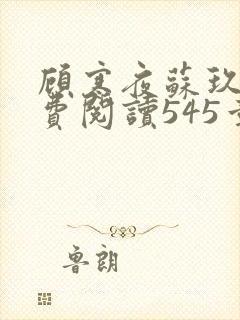 顧寒夜蘇玖
費閱讀545
魯朗